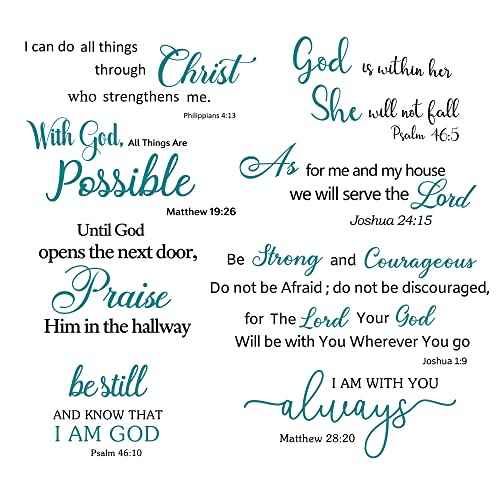 I can do all things
through Christ
who strengthens me.
Philippians 4:13
God is within her
She will not fall
Psalm 46:5
With God, All Things Are
Possible
Matthew 19:26
As for me and my house
we will serve the Lord
Joshua 24:15
Until God
opens the next door,
Praise
Him in the hallway
Be Strong and Courageous
Do not be Afraid ; do not be discouraged,
for The Lord Your God
Will be with You Wherever You go
Joshua 1:9
be still
AND KNOW THAT
I AM GOD
Psalm 46:10
I AM WITH YOU
always
Matthew 28:20